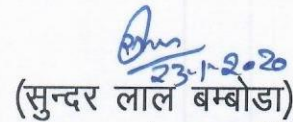 23-1-2020
(सुन्दर लाल बम्बोडा)